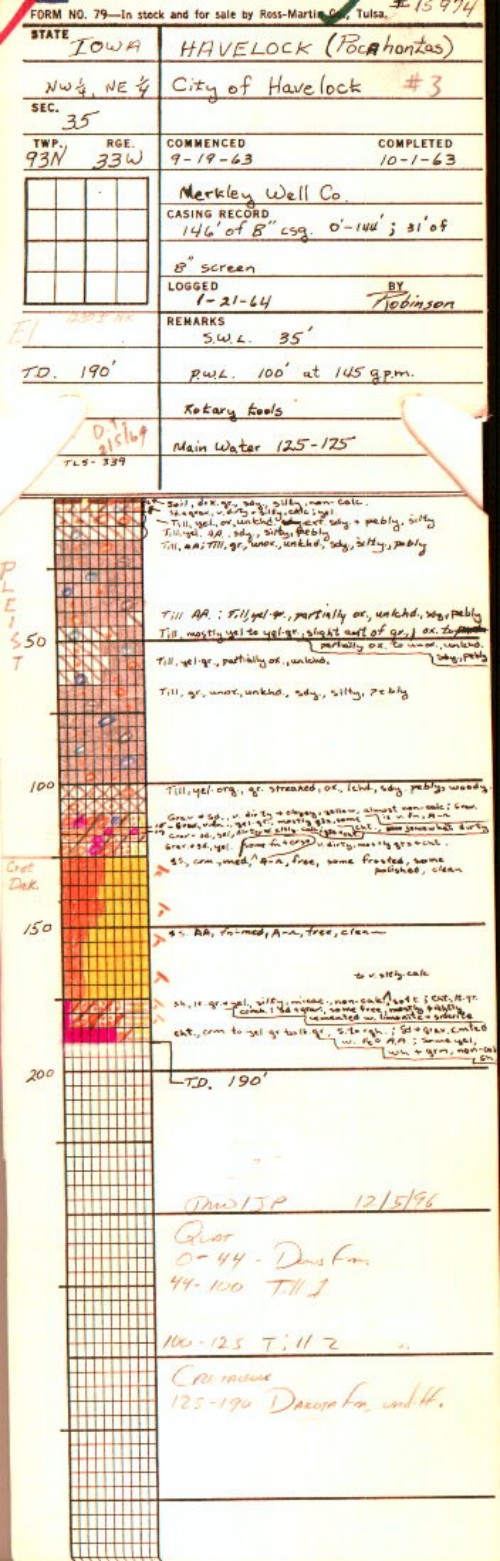 # 15974
FORM NO. 79—In stock and for sale by Ross-Martin Co., Tulsa.
STATE IOWA
HAVELOCK (Pocahontas)
NW¼, NE¼
City of Havelock #3
SEC. 35
TWP. 93N RGE. 33W
COMMENCED 9-19-63
COMPLETED 10-1-63
Merkley Well Co.
CASING RECORD
146' of 8" csg. 0'-144'; 31' of
8" screen
LOGGED 1-21-64
BY Robinson
El
REMARKS
S.W.L. 35'
T.D. 190'
P.W.L. 100' at 145 g.p.m.
Rotary tools
Main Water 125-175
D.T.
2/5/69
TLS-339
PLEIST
Soil, drk. gr., sdy., silty, non-calc.
Till, yel., ox., unlchd., ext. sdy. + pebly, silty
Till, yel. AA, sdy., silty, pebly
Till, AA; Till, gr., unox., unlchd., sdy., silty, pebly
Till AA; Till, yel-gr., partially ox., unlchd., sdy., pebly
50
Till, mostly yel to yel-gr., slight amt of gr., ox. to
partially ox. to unox., unlchd.
sdy., pebly
Till, yel-gr., partially ox., unlchd.
Till, gr., unox., unlchd., sdy., silty, pebly
100
Till, yel-org., gr. streaked, ox., lchd., sdy., pebly, woody.
Grav + sd., v. dirty + clayey, yellow, almost non-calc; Grav.
somewhat dirty
v. dirty, mostly qts + cht.
Cret
Dak.
ss, crm, med, A-r, free, some frosted, some
polished, clean
150
ss. AA, fn-med, A-r, free, clean
to v. sltly. calc
sh, lt. gr. + yel, silty, micac., non-calc, soft; cht, lt. gr.
comb.; sd + grav, some free, mostly tightly
cemented w. limonite + siderite
cht., crm to yel-gr to lt. gr.; sd + grav, cmted
w. FeO AA; some yel,
wh + grn, non-cal
sh
200
T.D. 190'
12/5/96
Quat
0-44 - Dows Fm.
44-100 Till 1
100-125 Till 2 "
Cretaceous
125-190 Dakota Fm, undiff.